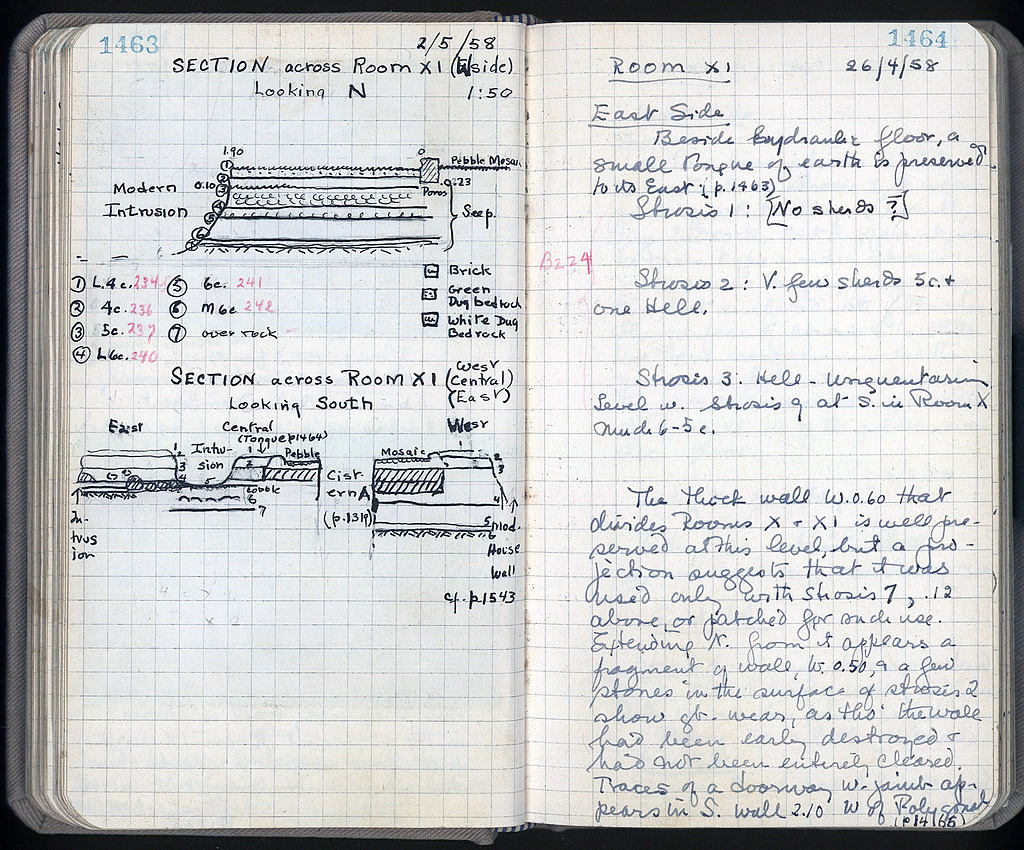 1463
2/5/58
SECTION across Room XI (W side)
Looking N 1:50
1.90 0
① Pebble Mosaic
②
Modern 0.10 ③ Poros 0.23
Intrusion ④ Seep.
⑤
⑥
⑦
① L.4c. 234 ⑤ 6c. 241
② 4c. 236 ⑥ M6c 242
③ 5c. 237 ⑦ over rock
④ L6c. 240
Brick
Green
Dug bedrock
White Dug
Bedrock
SECTION across Room XI (West
Central)
(East)
Looking South
East Central West
(Tongue p1464)
Intru-
sion
Pebble
Mosaic
1
2
3
4
5
Cobble
6
7
Cist-
ern A
(p.1319)
In-
trus
ion
2
3
4
5
6
mod.
House
Wall
cf. p.1543
1464
Room XI 26/4/58
East Side
Beside hydraulic floor, a
small tongue of earth is preserved
to its East (p. 1463)
Strosis 1: [No sherds ?]
B224
Strosis 2: V. few sherds 5c. +
one Hell.
Strosis 3: Hell - Unguentarium
Level w. Strosis 9 at S. in Room X
Much 6-5c.
The thick wall W. 0.60 that
divides Rooms X + XI is well pre-
served at this level, but a pro-
jection suggests that it was
used only with Strosis 7, .12
above, or patched for such use.
Extending N. from it appears a
fragment of wall, W. 0.50, + a few
stones in the surface of strosis 2
show gt. wear, as tho' the wall
had been early destroyed +
had not been entirely cleared.
Traces of a doorway w. jamb ap-
pears in S. wall 2.10 W of Polygonal
(p1466)